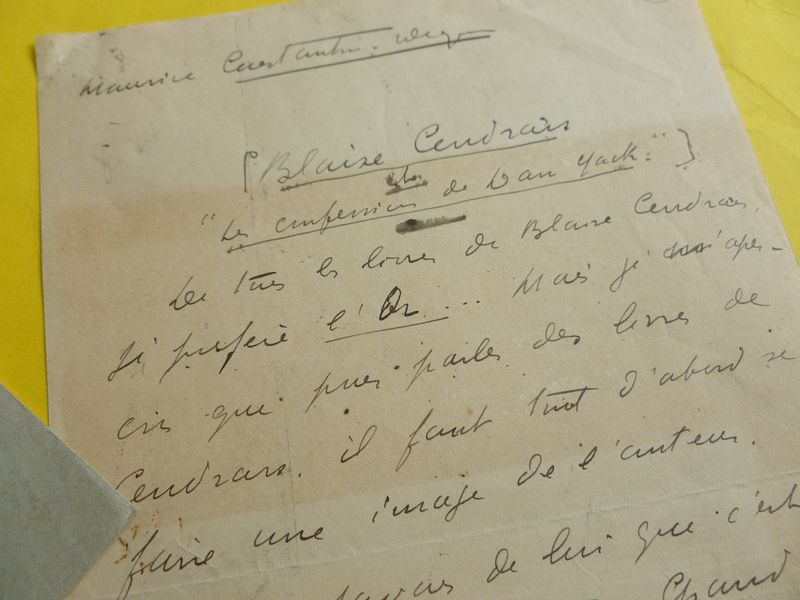 Maurice Constantin-Weyer
[Blaise Cendrars
"Les confessions de Dan Yack."]
De tous les livres de Blaise Cendrars,
je préfère l'Or... Mais je m'aper-
çois que pour parler des livres de
Cendrars, il faut tout d'abord se
faire une image de l'auteur.
savais de lui que c'est
Chaud